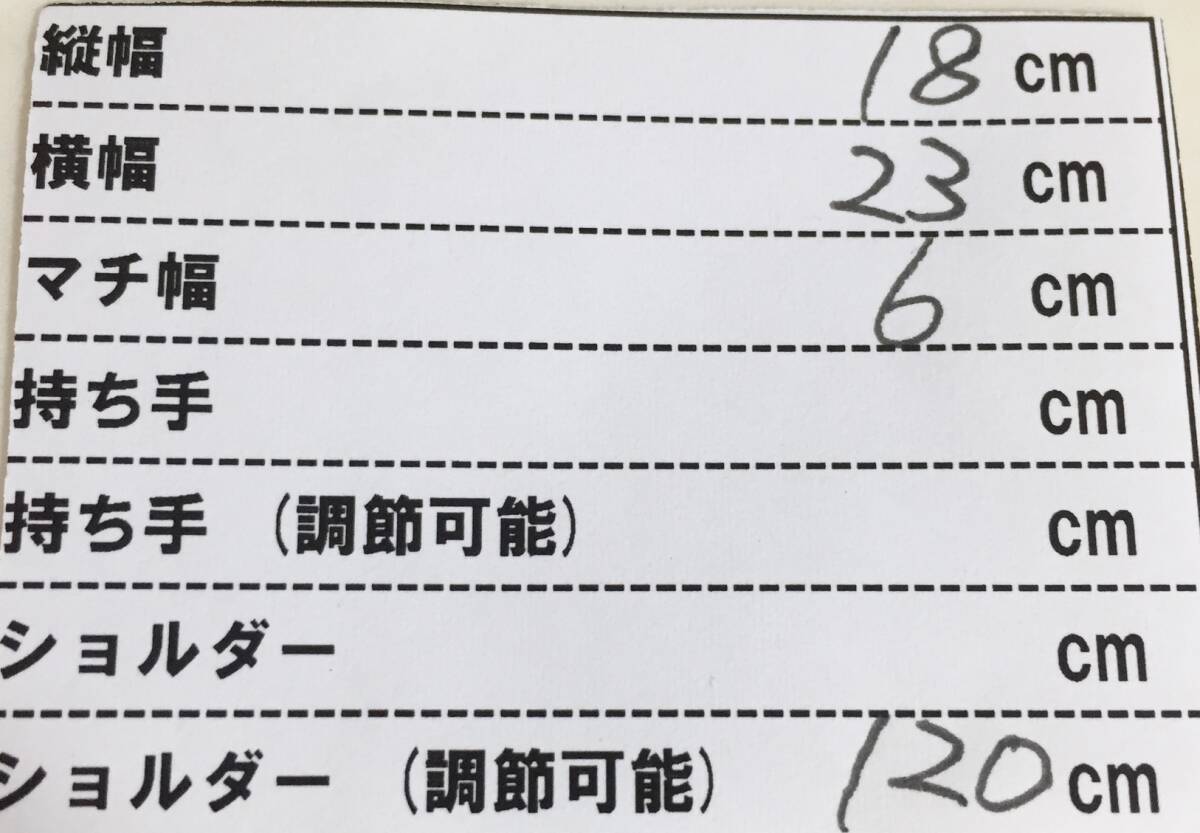 縦幅 18 cm
横幅 23 cm
マチ幅 6 cm
持ち手 cm
持ち手 (調節可能) cm
ショルダー cm
ショルダー (調節可能) 120 cm